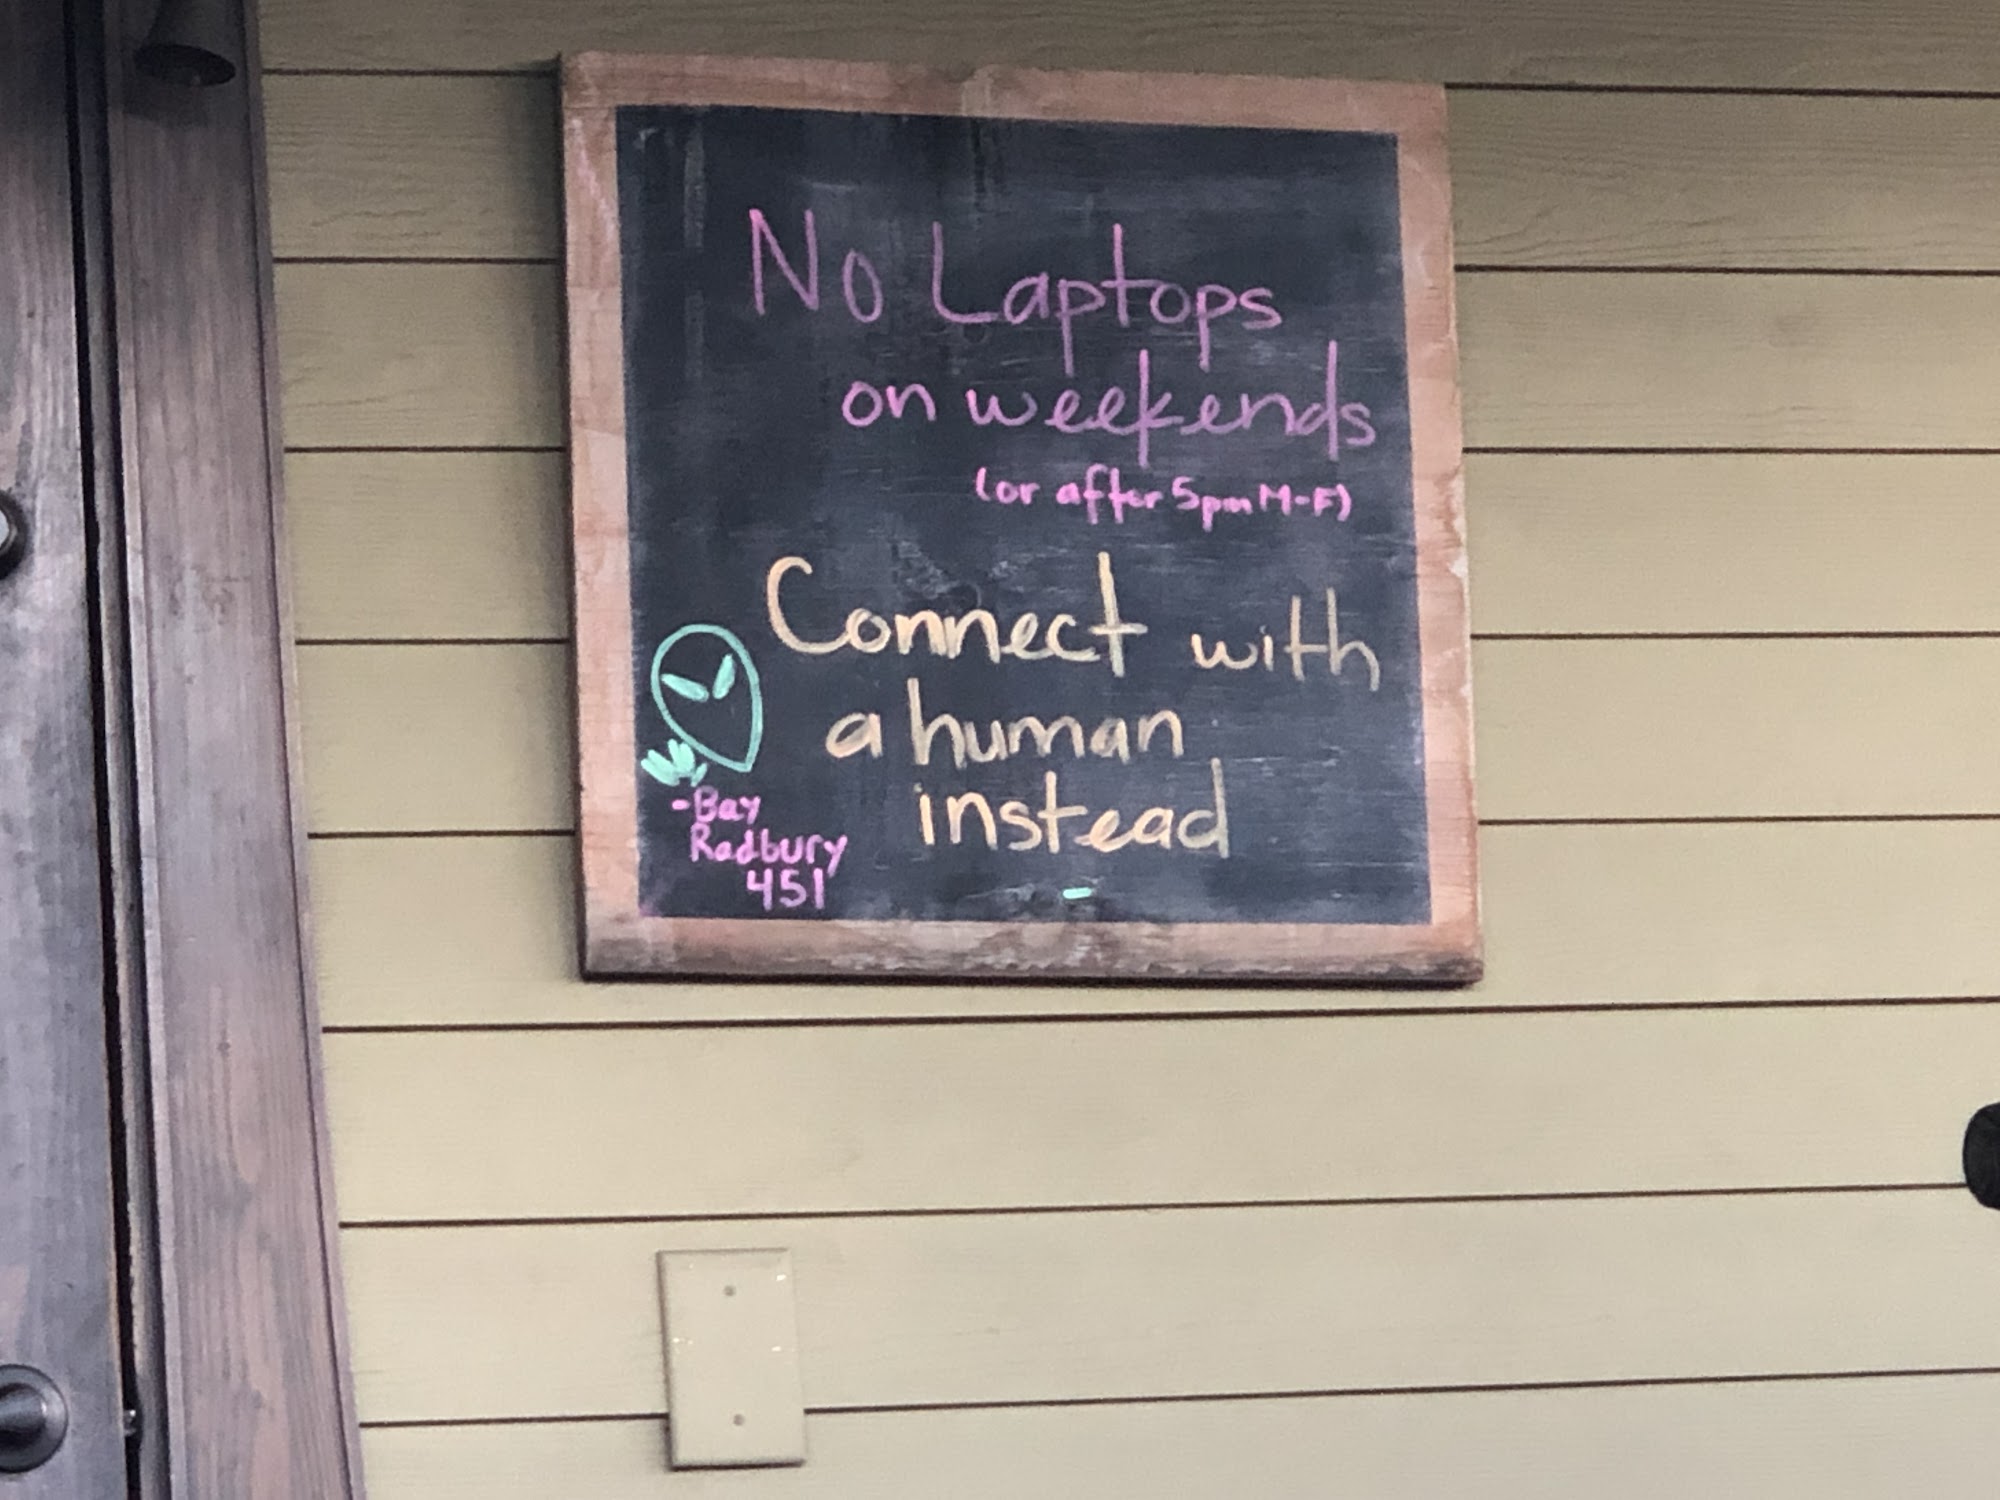 No Laptops
on weekends
(or after 5pm M-F)
Connect with
a human
instead
-Bay
Radbury
451